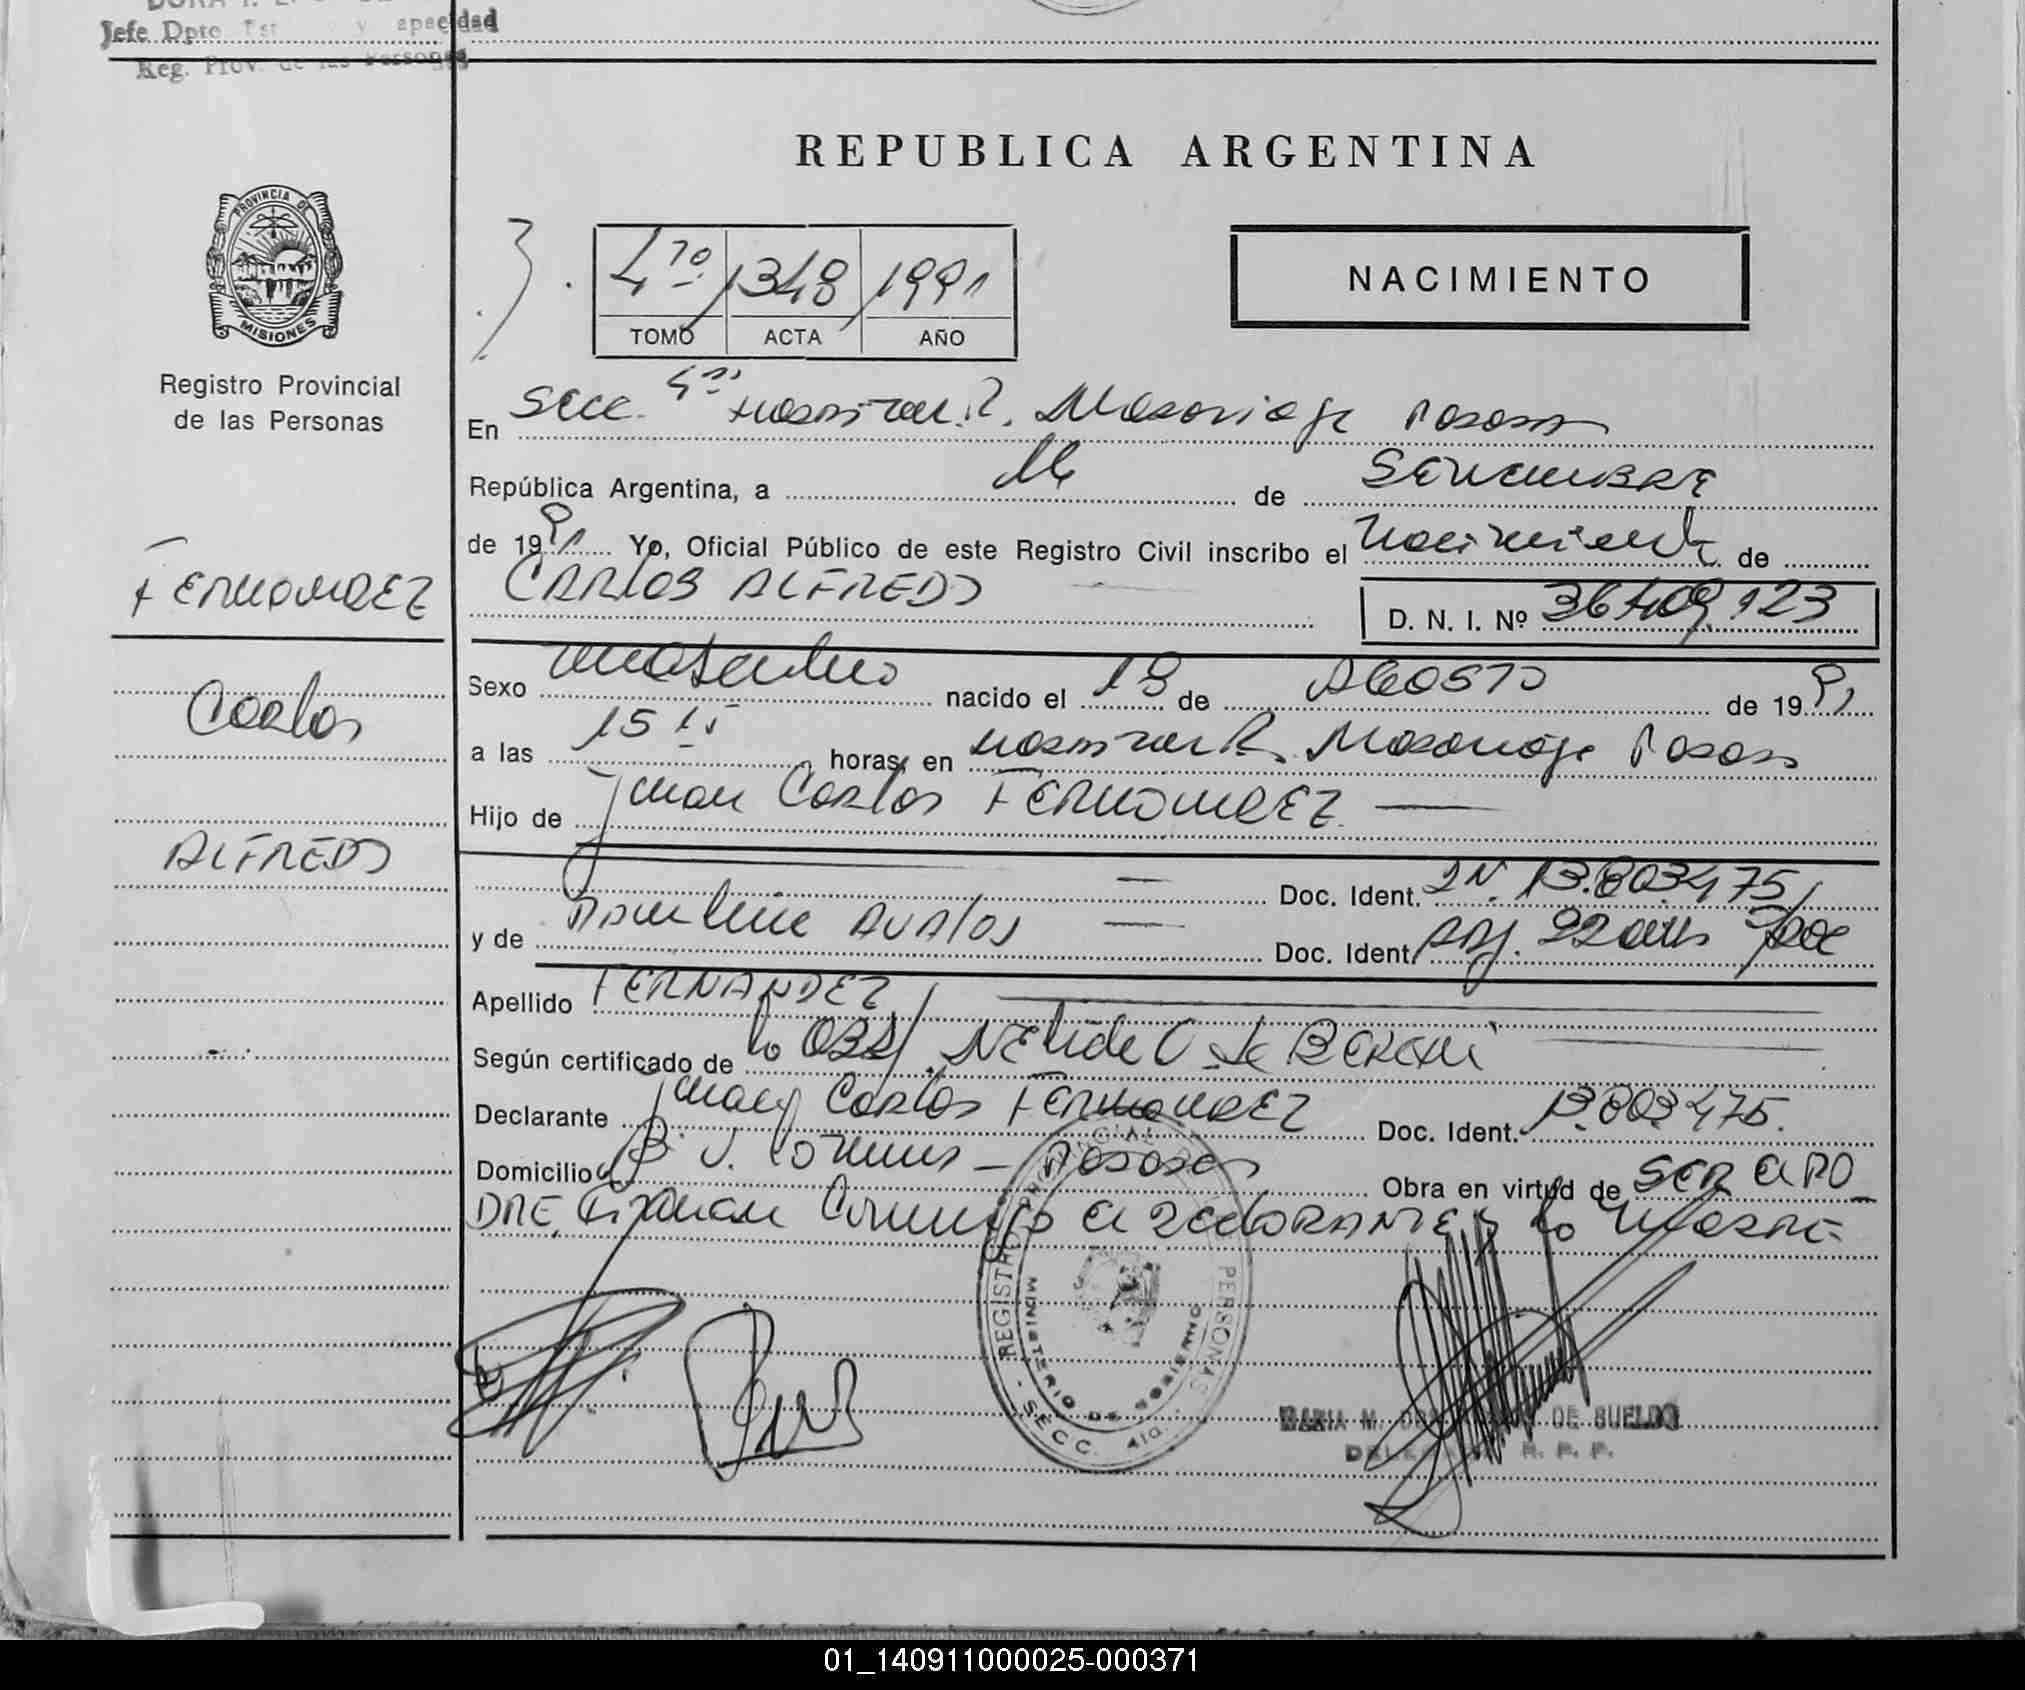 Jefe Dpto. Est y apacidad
Reg. Prov. de las Personas
REPUBLICA ARGENTINA
PROVINCIA DE
MISIONES
Registro Provincial
de las Personas
4to 1348 1991
TOMO ACTA AÑO
NACIMIENTO
En Secc. 4ta Hospital R. Madariaga Posadas
República Argentina, a 16 de SETIEMBRE
de 1991 Yo, Oficial Público de este Registro Civil inscribo el nacimiento de
CARLOS ALFREDO
D. N. I. Nº 36.409.123
FERNANDEZ
Carlos
ALFREDO
Sexo masculino nacido el 19 de AGOSTO de 1991
a las 15 15 horas, en Hospital R. Madariaga Posadas
Hijo de Juan Carlos FERNANDEZ
Doc. Ident. 13.803.475
y de AVALOS Doc. Ident. 22 años
Apellido FERNANDEZ
Según certificado de la OBST. Nélida C. de
Declarante Juan Carlos FERNANDEZ Doc. Ident. 13.803.475.
Domicilio Posadas Obra en virtud de SER EL PA
DRE, Firman Conmigo el DECLARANTE y la MADRE
REGISTRO PROVINCIAL DE LAS PERSONAS
MINISTERIO DE GOBIERNO
SECC. 4ta.
MARIA M. DE SUELDO
DELEGADA R. P. P.
01_140911000025-000371